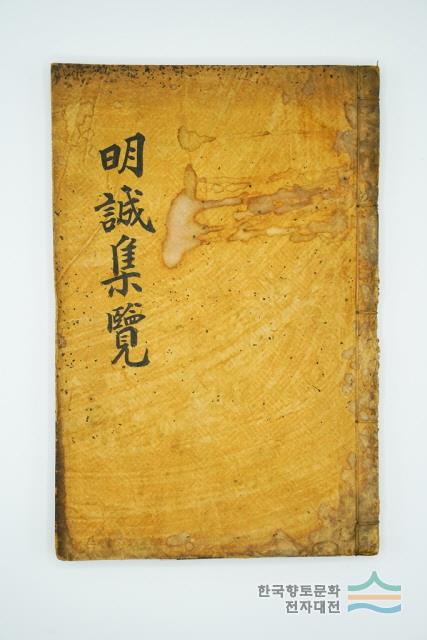 明誠集覽
한국향토문화
전자대전